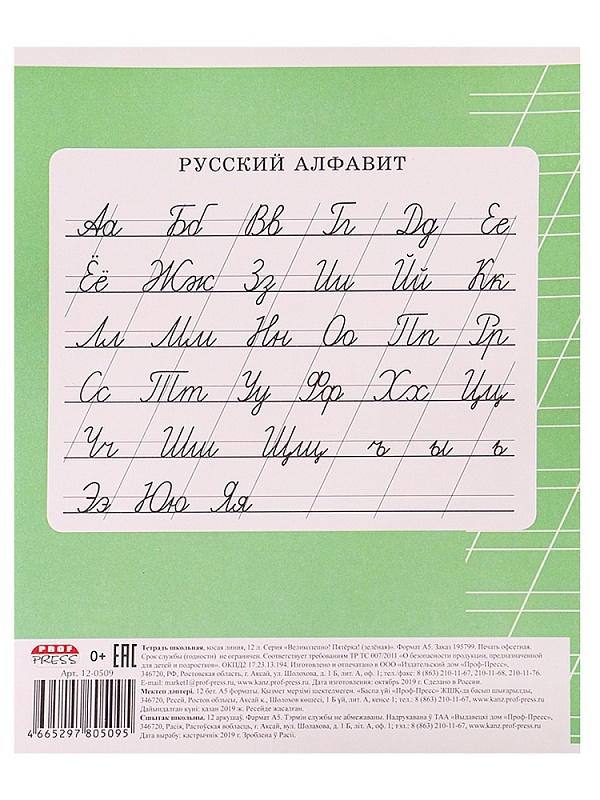 РУССКИЙ АЛФАВИТ
Аа Бб Вв Гг Дд Ее
Ёё Жж Зз Ии Йй Кк
Лл Мм Нн Оо Пп Рр
Сс Тт Уу Фф Хх Цц
Чч Шш Щщ ъ ы ь
Ээ Юю Яя
PROF PRESS
0+ EAC
Арт. 12-0509
4 665297 805095
Тетрадь школьная, косая линия, 12 л. Серия «Великолепно! Пятёрка! (зелёная)». Формат А5. Заказ 195799. Печать офсетная.
Срок службы (годности) не ограничен. Соответствует требованиям ТР ТС 007/2011 «О безопасности продукции, предназначенной
для детей и подростков». ОКПД2 17.23.13.194. Изготовлено и отпечатано в ООО «Издательский дом «Проф-Пресс»,
346720, РФ, Ростовская область, г. Аксай, ул. Шолохова, д. 1 Б, лит. А, оф. 1; тел./факс: 8 (863) 210-11-67, 210-11-68, 210-11-76.
E-mail: market1@prof-press.ru, www.kanz.prof-press.ru. Дата изготовления: октябрь 2019 г. Сделано в России.
Мектеп дәптері. 12 бет. А5 форматы. Қызмет мерзімі шектелмеген. «Баспа үйі «Проф-Пресс» ЖШҚ-да басып шығарылды,
346720, Ресей, Ростов облысы, Аксай қ., Шолохов көшесі, 1 Б үй, лит. А, кеңсе 1; тел.: 8 (863) 210-11-67, www.kanz.prof-press.ru
Дайындалған күні: қазан 2019 ж. Ресейде жасалған.
Сшытак школьны. 12 аркушаў. Фармат А5. Тэрмін службы не абмежаваны. Надрукавана ў ТАА «Выдавецкі дом «Проф-Пресс»,
346720, Расія, Растоўская вобласць, г. Аксай, вул. Шолахава, д. 1 Б, літ. А, оф. 1; тэл.: 8 (863) 210-11-67, www.kanz.prof-press.ru
Дата вырабу: кастрычнік 2019 г. Зроблена ў Расіі.